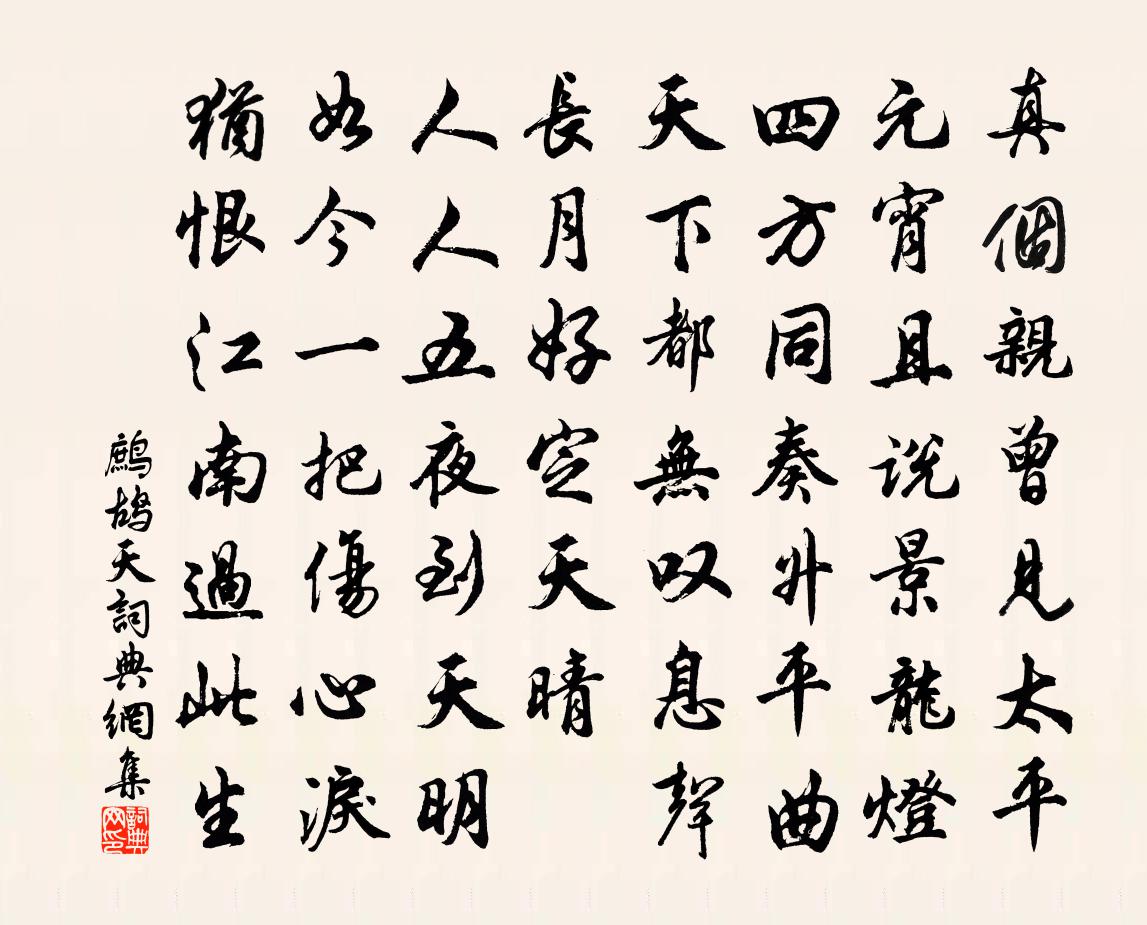 真個親曾見太平
元宵且說景龍燈
四方同奏升平曲
天下都無叹息聲
長月好定天晴
人人五夜到天明
如今一把傷心淚
猶恨江南過此生
鷓鴣天詞典網集
詞典网印